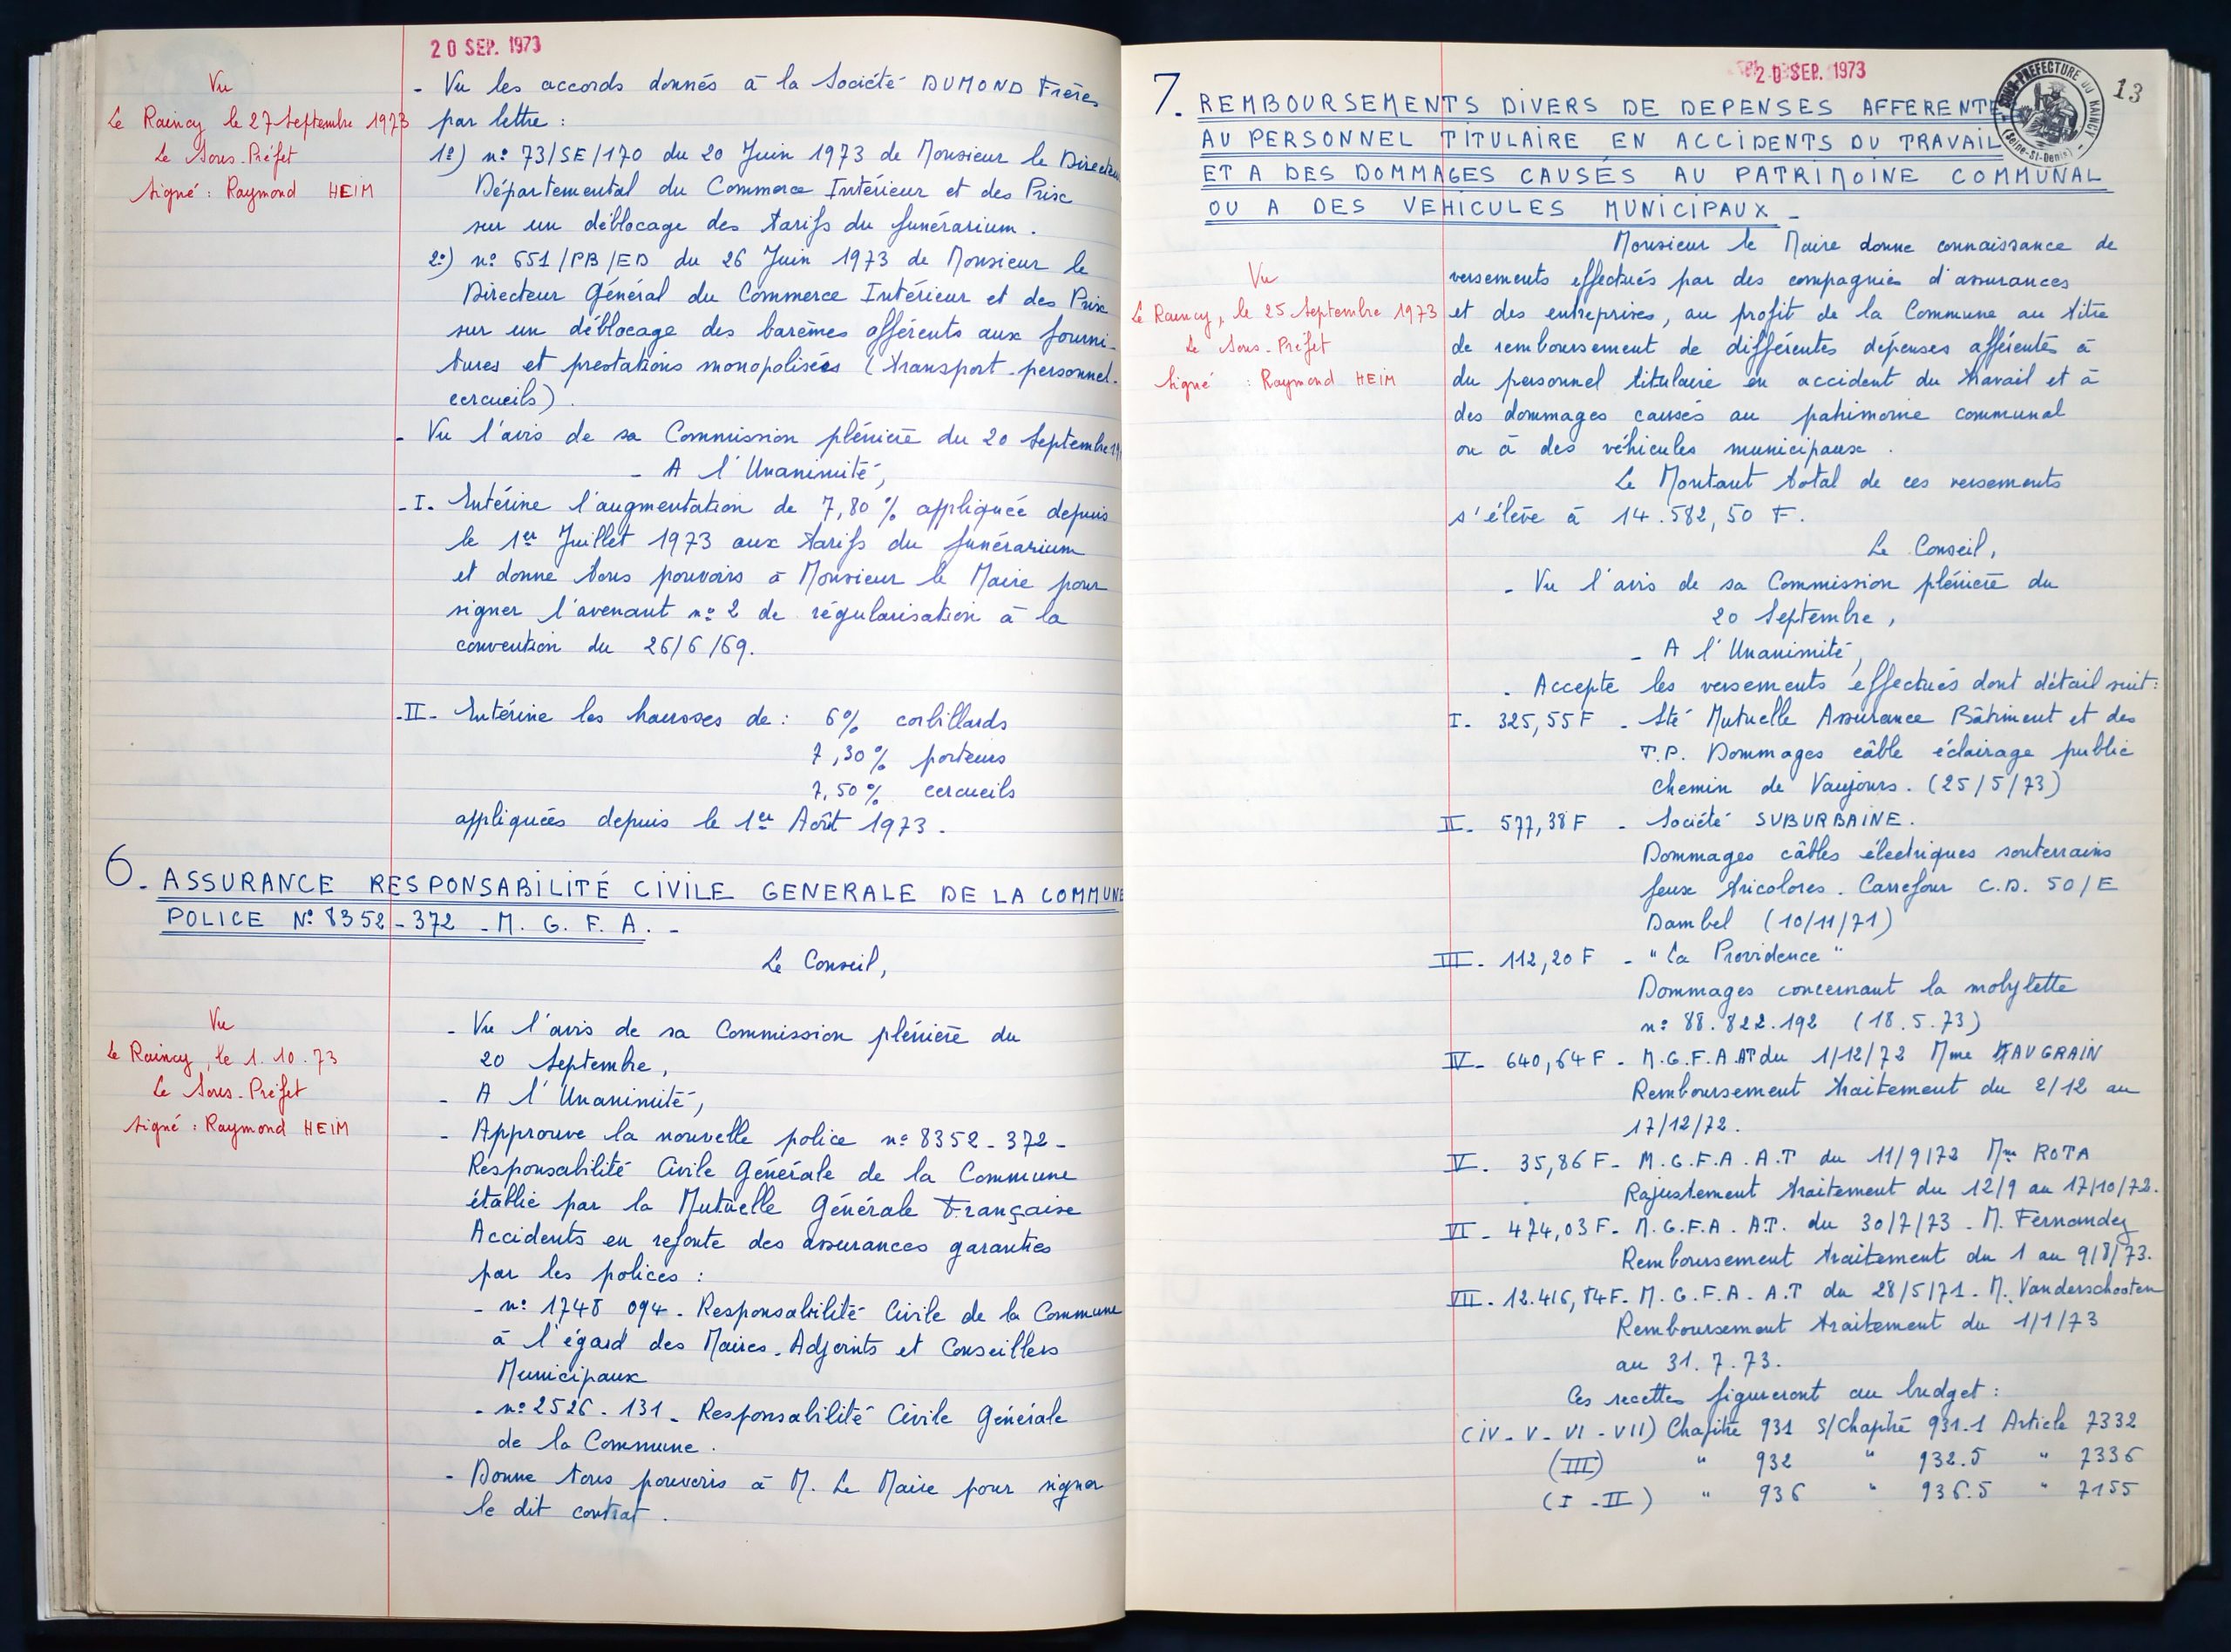 20 SEP. 1973
Vu
Le Raincy le 27 Septembre 1973
Le Sous-Préfet
Signé : Raymond HEIM
- Vu les accords donnés à la Société DUMOND Frères
par lettre :
1°) n° 73/SE/170 du 20 Juin 1973 de Monsieur le Directeu
Départemental du Commerce Intérieur et des Prix
sur un déblocage des tarifs du funérarium.
2°) n° 651/PB/ED du 26 Juin 1973 de Monsieur le
Directeur Général du Commerce Intérieur et des Prix
sur un déblocage des barèmes afférents aux fourni-
tures et prestations monopolisées (transport-personnel-
cercueils).
- Vu l'avis de sa Commission plénière du 20 Septembre 19
- A l'Unanimité,
-I- Entérine l'augmentation de 7,80 % appliquée depuis
le 1er Juillet 1973 aux tarifs du funérarium
et donne tous pouvoirs à Monsieur le Maire pour
signer l'avenant n° 2 de régularisation à la
convention du 26/6/69.
-II- Entérine les hausses de : 6% corbillards
7,30% porteurs
7,50% cercueils
appliquées depuis le 1er Août 1973.
6. ASSURANCE RESPONSABILITÉ CIVILE GENERALE DE LA COMMUNE
POLICE N° 8352-372 - M. G. F. A. -
Le Conseil,
Vu
Le Raincy, le 1.10.73
Le Sous-Préfet
Signé : Raymond HEIM
- Vu l'avis de sa Commission plénière du
20 Septembre,
- A l'Unanimité,
- Approuve la nouvelle police n° 8352-372-
Responsabilité Civile Générale de la Commune
établie par la Mutuelle Générale Française
Accidents en refonte des assurances garanties
par les polices :
- n° 1748 094 - Responsabilité Civile de la Commune
à l'égard des Maires-Adjoints et Conseillers
Municipaux
- n° 2526-131 - Responsabilité Civile Générale
de la Commune.
- Donne tous pouvoirs à M. Le Maire pour signer
le dit contrat.
20 SEP. 1973
SOUS-PREFECTURE DU RAINCY
(Seine-St-Denis)
13
7. REMBOURSEMENTS DIVERS DE DEPENSES AFFERENTE
AU PERSONNEL TITULAIRE EN ACCIDENTS DU TRAVAIL
ET A DES DOMMAGES CAUSES AU PATRIMOINE COMMUNAL
OU A DES VEHICULES MUNICIPAUX -
Vu
Le Raincy, le 25 Septembre 1973
Le Sous-Préfet
Signé : Raymond HEIM
Monsieur le Maire donne connaissance de
versements effectués par des compagnies d'assurances
et des entreprises, au profit de la Commune au titre
de remboursement de différentes dépenses afférentes à
du personnel titulaire en accident du travail et à
des dommages causés au patrimoine communal
ou à des véhicules municipaux.
Le Montant total de ces versements
s'élève à 14.582,50 F.
Le Conseil,
- Vu l'avis de sa Commission plénière du
20 Septembre,
- A l'Unanimité,
- Accepte les versements effectués dont détail suit :
I- 325,55 F - Sté Mutuelle Assurance Bâtiment et des
T.P. Dommages câble éclairage public
chemin de Vaujours. (25/5/73)
II- 577,38 F - Société SUBURBAINE.
Dommages câbles électriques souterrains
feux tricolores. Carrefour C.D. 50/E
Dambel (10/11/71)
III- 112,20 F - "La Providence"
Dommages concernant la mobylette
n° 88.822.192 (18.5.73)
IV- 640,64 F - M.G.F.A AT du 1/12/72 Mme HAUGRAIN
Remboursement traitement du 2/12 au
17/12/72.
V- 35,86 F- M.G.F.A. A.T du 11/9/72 Mme ROTA
Rajustement traitement du 12/9 au 17/10/72.
VI- 474,03 F- M.G.F.A. A.T. du 30/7/73 - M. Fernandez
Remboursement traitement du 1 au 9/8/73.
VII- 12.416,84 F- M.G.F.A. A.T du 28/5/71- M. Vanderschooten
Remboursement traitement du 1/1/73
au 31.7.73.
Ces recettes figureront au budget :
(IV - V - VI - VII) Chapitre 931 S/Chapitre 931.1 Article 7332
(III) " 932 " 932.5 " 7336
(I - II) " 936 " 936.5 " 7155